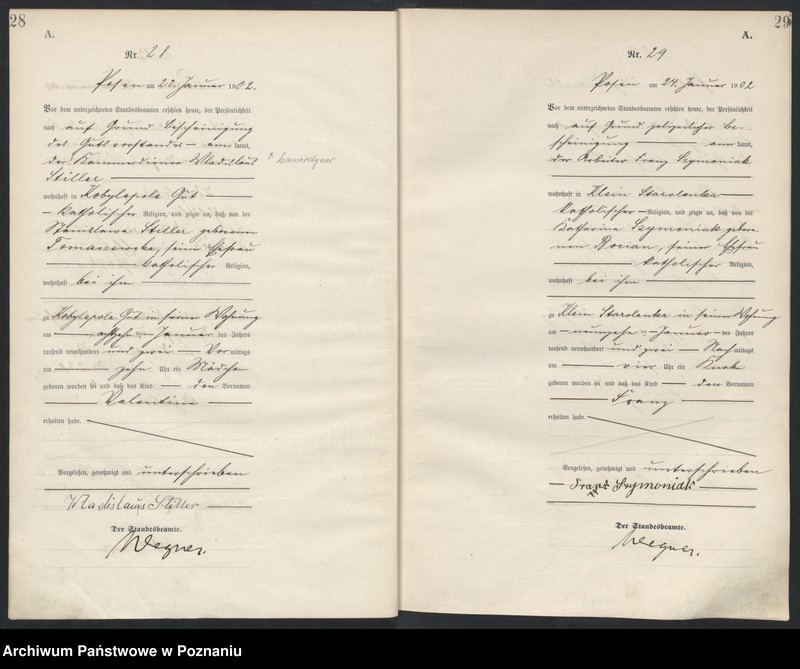 28
A.
Nr. 28
Posen am 22. Januar 1902.
Vor dem unterzeichneten Standesbeamten erschien heute, der Persönlichkeit
nach auf Grund Bescheinigung
des Gutsvorstandes — anerkannt,
der Kammerdiener Wladislaus
Stiller
wohnhaft in Kobylepole Gut
katholischer Religion, und zeigte an, daß von der
Stanislawa Stiller geborenen
Tomaszewska, seiner Ehefrau
katholischer Religion,
wohnhaft bei ihm
zu Kobylepole Gut in seiner Wohnung
am achtzehn Januar des Jahres
tausend neunhundert und zwei — Vormittags
um zehn Uhr ein Mädchen
geboren worden sei und daß das Kind den Vornamen
Valentine
erhalten habe.
Vorgelesen, genehmigt und unterschrieben
Wladislaus Stiller
Der Standesbeamte.
Wegner.
29
A.
Nr. 29
Posen am 24. Januar 1902
Vor dem unterzeichneten Standesbeamten erschien heute, der Persönlichkeit
nach auf Grund polizeilicher Be-
scheinigung — anerkannt,
der Arbeiter Franz Szymoniak
wohnhaft in Klein Starolenka
katholischer Religion, und zeigte an, daß von der
Katharina Szymoniak gebore-
nen Bocian, seiner Ehefrau
katholischer Religion,
wohnhaft bei ihm
zu Klein Starolenka in seiner Wohnung
am neunzehn Januar des Jahres
tausend neunhundert und zwei — Nachmittags
um vier Uhr ein Knabe
geboren worden sei und daß das Kind den Vornamen
Franz
erhalten habe.
Vorgelesen, genehmigt und unterschrieben
Franz Szymoniak
Der Standesbeamte.
Wegner.
Archiwum Państwowe w Poznaniu